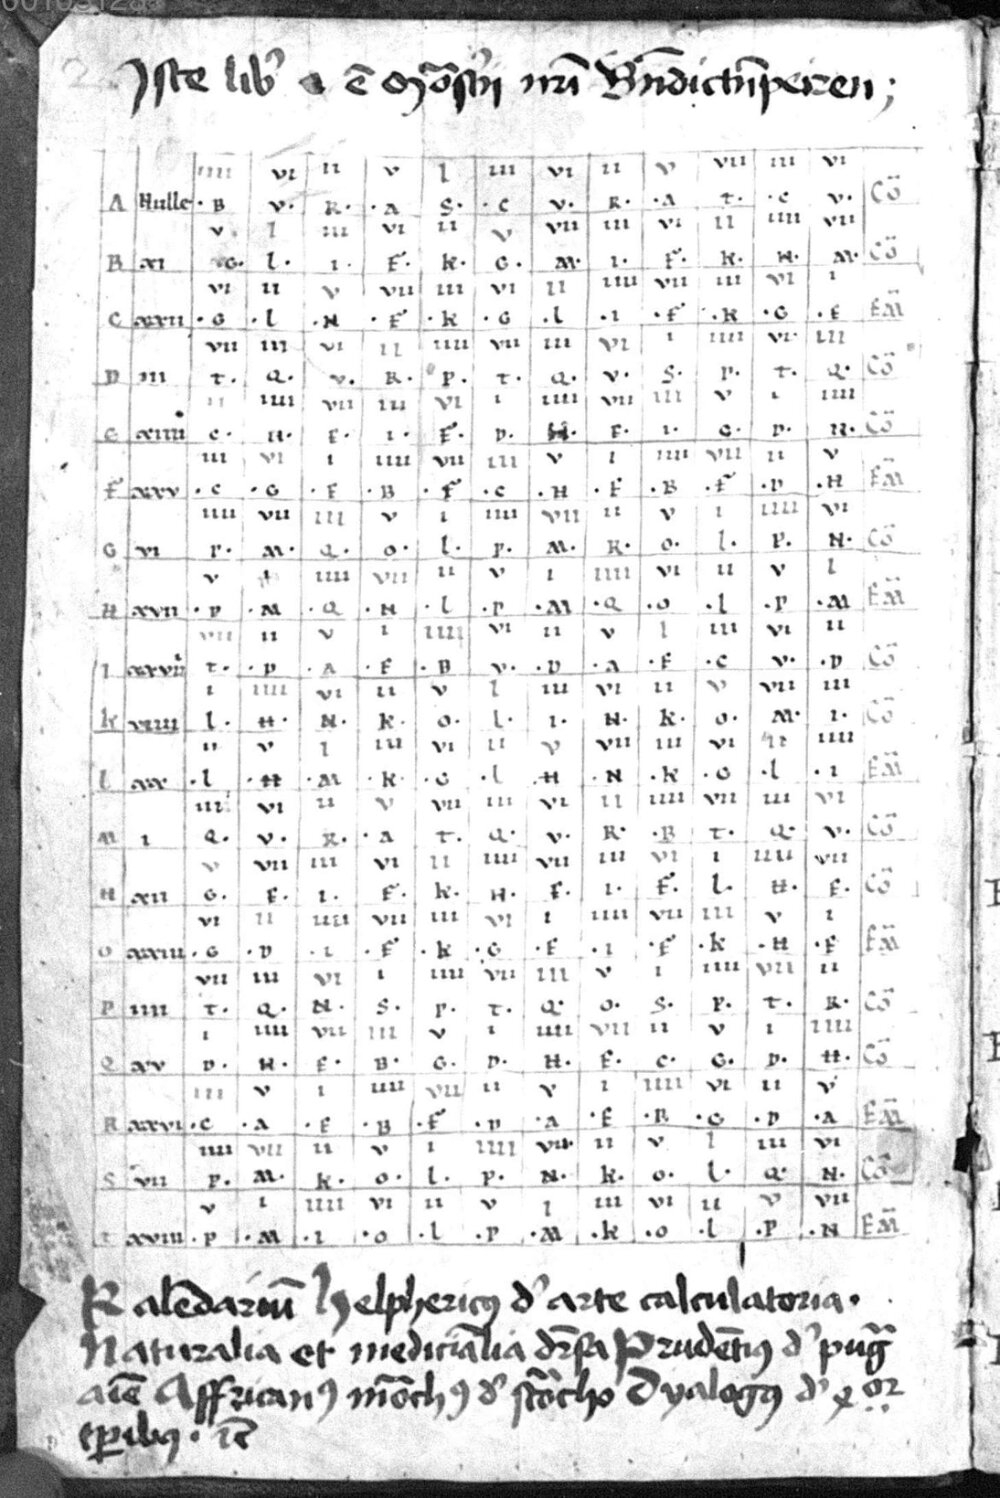 Iste lib' ē Mōst'ij nr̄i Bn̄dictn̄peiren;
IIII VI II V I IIII VI II V VII III VI
A Nulle · B V. R. · A S. · C V. R. · A T. · C V. Cō
V I III VI II V VII III VI II IIII VII
B XI G. l. I. F. K. G. M. I. F. K. N. M. Cō
VI II V VII III VI II IIII VII III VI I
C XXII · G · l · N · F · K · G · l · I · F · K · G · E Em̄
VII III VI II IIII VII III VI I IIII VI III
D III T. Q. V. R. P. T. Q. V. S. P. T. Q. Cō
II IIII VII III VI I IIII VII III V I IIII
E XIIII C. H. F. I. F. D. H. F. I. G. D. N. Cō
III VI I IIII VII III V I IIII VII II V
F XXV · C · G · E · B · F · C · H · E · B · F · D · H Em̄
IIII VII III V I IIII VII II V I IIII VI
G VI P. M. Q. O. l. P. M. R. O. l. P. N. Cō
V I IIII VII II V I IIII VI II V I
H XVII · P · M · Q · N · l · P · M · Q · O · l · P · M Em̄
VII II V I IIII VI II V I III VI II
I XXVIII T. · D · A · E · B V. · D · A · E · C V. · D Cō
I IIII VI II V I III VI II V VII III
K VIIII l. H. N. K. O. l. I. N. K. O. M. I. Cō
II V I III VI II V VII III VI II IIII
l XX · l · H · M · K · G · l · H · N · K · G · l · I Em̄
IIII VI II V VII III VI II IIII VII III VI
M I Q. V. R. · A T. Q. V. R. · B T. Q. V. Cō
V VII III VI II IIII VII III VI I IIII VII
N XII G. E. I. F. K. H. E. I. F. l. H. E. Cō
VI II IIII VII III VI I IIII VII III V I
O XXIII · G · D · I · F · K · G · E · I · F · K · H · E Em̄
VII III VI I IIII VII III V I IIII VII II
P IIII T. Q. N. S. P. T. Q. O. S. P. T. R. Cō
I IIII VII III V I IIII VII II V I IIII
Q XV D. H. F. B. G. D. H. F. C. G. D. H. Cō
III V I IIII VII II V I IIII VI II V
R XXVI · C · A · E · B · F · D · A · E · B · G · D · A Em̄
IIII VII II V I IIII VII II V I III VI
S VII P. M. K. O. l. P. N. K. O. l. Q. N. Cō
V I IIII VI II V I III VI II V VII
T XVIII · P · M · I · O · l · P · M · K · O · l · P · N Em̄
Kalēdariū Helphericꝯ d' arte calculatoria.
Naturalia et medicīalia dr̄sa Prudētiꝯ d' puḡ
aīē Affricanꝯ mōchꝯ d' stōcho Dyalogꝯ d'